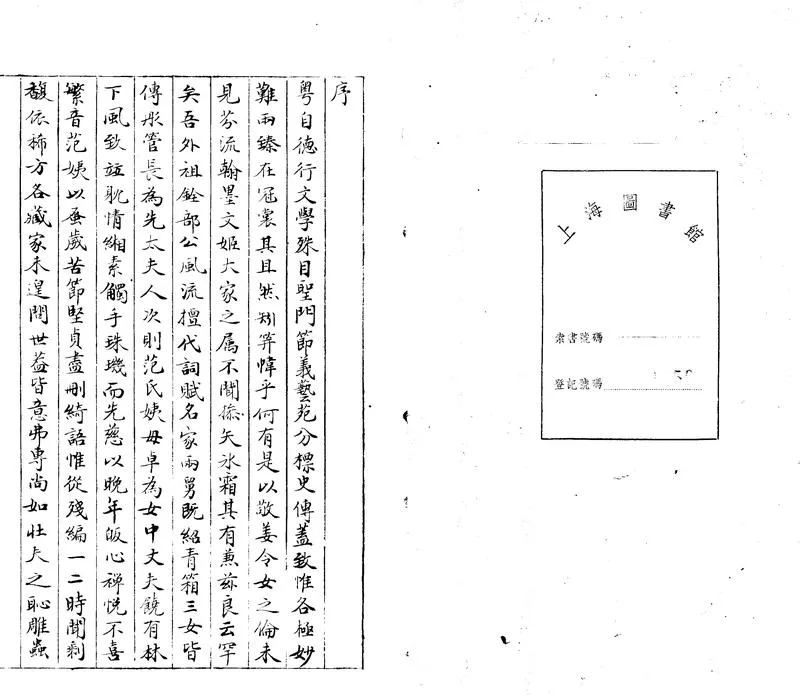 上海圖書館
索書號碼
登記號碼
序
粤自德行文學殊目聖門節義藝苑分標史傳蓋致惟各極妙
難兩臻在冠裳其且然矧笄幃乎何有是以敬姜令女之倫未
見芬流翰墨文姬大家之属不聞操矢氷霜其有兼茲良云罕
矣吾外祖銓部公風流擅代詞賦名家兩舅既紹青箱三女皆
傳彤管長為先太夫人次則范氏姨母卓為女中丈夫饒有林
下風致竝耽情緗素觸手珠璣而先慈以晚年皈心禅悦不喜
繁音范姨以蚤歲苦節堅貞盡刪綺語惟從殘編一二時聞剩
馥依稀方各藏家未遑問世益皆意弗專尚如壯夫之恥雕蟲